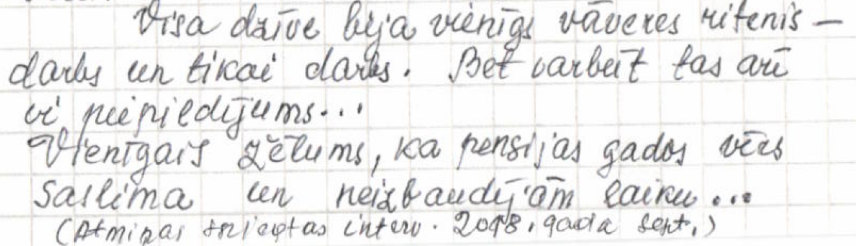 Visa dzīve bija vienīgs vāveres ritenis –
darbs un tikai darbs. Bet varbūt tas arī
ir piepildījums...
Vienīgais žēlums, ka pensijas gados vīrs
saslima un neizbaudījām laiku...
(Atmiņas sniegtas interv. 2018. gada sept.)